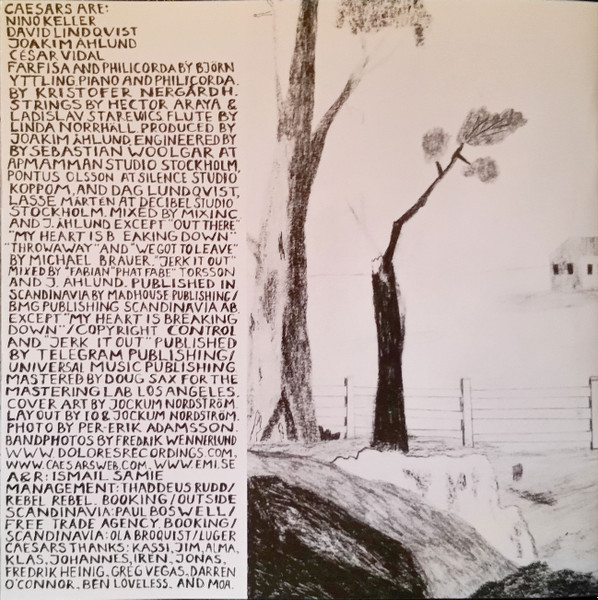 CAESARS ARE:
NINO KELLER
DAVID LINDQVIST
JOAKIM ÅHLUND
CÉSAR VIDAL
FARFISA AND PHILICORDA BY BJÖRN
YTTLING PIANO AND PHILICORDA.
BY KRISTOFER NERGÅRDH.
STRINGS BY HECTOR ARAYA &
LADISLAV STAREWICS. FLUTE BY
LINDA NORRHALL. PRODUCED BY
JOAKIM ÅHLUND. ENGINEERED BY
BY SEBASTIAN WOOLGAR AT
APMAMMAN STUDIO STOCKHOLM,
PONTUS OLSSON AT SILENCE STUDIO
KOPPOM, AND DAG LUNDQVIST,
LASSE MÅRTÉN AT DECIBEL STUDIO
STOCKHOLM. MIXED BY MIXINC.
AND J. ÅHLUND EXCEPT "OUT THERE"
"MY HEART IS B EAKING DOWN"
"THROWAWAY" AND "WE GOT TO LEAVE"
BY MICHAEL BRAUER. "JERK IT OUT"
MIXED BY "FABIAN "PHAT FABE" TORSSON
AND J. AHLUND. PUBLISHED IN
SCANDINAVIA BY MADHOUSE PUBLISHING/
BMG PUBLISHING SCANDINAVIA AB.
EXCEPT "MY HEART IS BREAKING
DOWN"/COPYRIGHT CONTROL
AND "JERK IT OUT" PUBLISHED
BY TELEGRAM PUBLISHING/
UNIVERSAL MUSIC PUBLISHING
MASTERED BY DOUG SAX FOR THE
MASTERING LAB LOS ANGELES.
COVER ART BY JOCKUM NORDSTRÖM.
LAY OUT BY IO & JOCKUM NORDSTRÖM.
PHOTO BY PER-ERIK ADAMSSON.
BANDPHOTOS BY FREDRIK WENNERLUND
WWW.DOLORESRECORDINGS.COM,
WWW.CAESARSWEB.COM. WWW.EMI.SE
A&R: ISMAIL SAMIE
MANAGEMENT: THADDEUS RUDD/
REBEL REBEL. BOOKING/OUTSIDE
SCANDINAVIA: PAUL BOSWELL/
FREE TRADE AGENCY. BOOKING/
SCANDINAVIA: OLA BROQUIST/LUGER
CAESARS THANKS: KASSI, JIM, ALMA,
KLAS, JOHANNES, IREN, JONAS,
FREDRIK HEINIG, GREG VEGAS. DARREN
O'CONNOR. BEN LOVELESS. AND MOA.